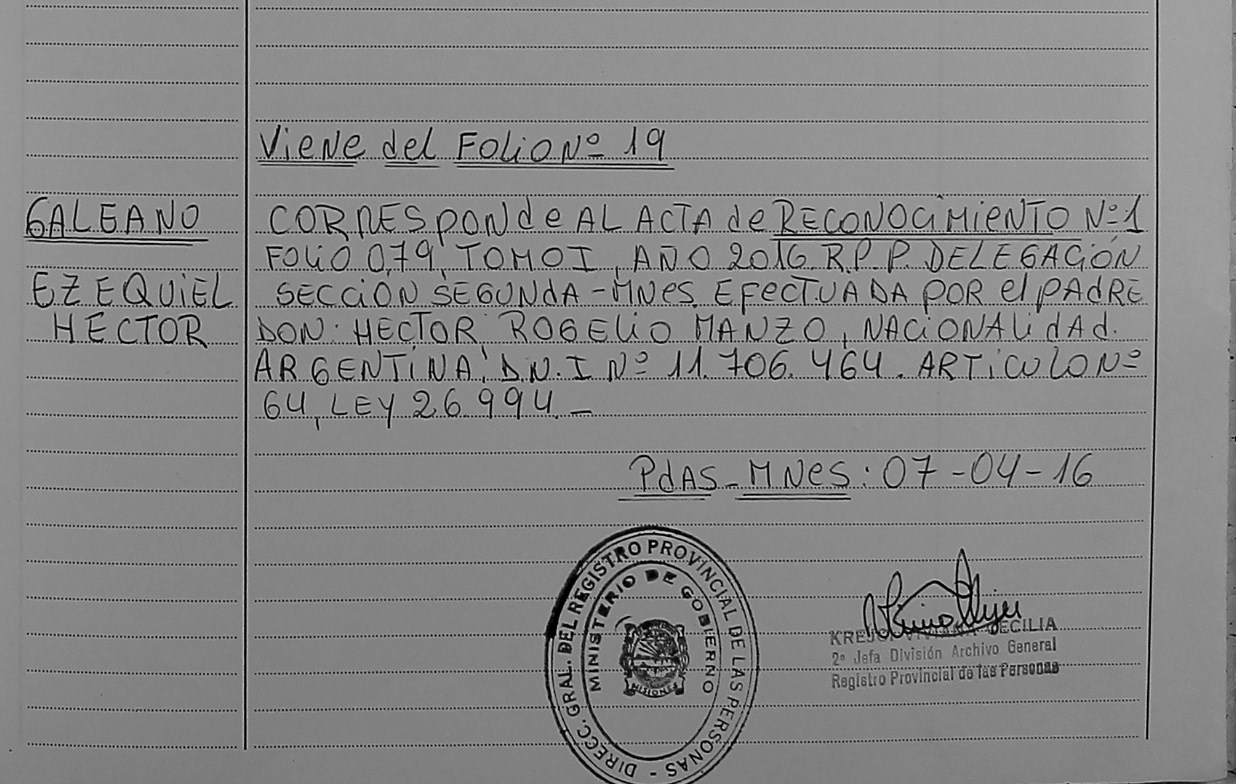 Viene del Folio Nº 19
GALEANO
EZEQUIEL
HECTOR
CORRESponde AL ACTA de RECONOCIMIENTO Nº 1
FOLIO 079, TOMO I, AÑO 2016 R.P.P. DELEGACIÓN
SECCION SEGUNDA - MNES EFECTUADA POR el PADRE
DON: HECTOR ROGELIO MANZO, NACIONALIdAd.
ARGENTINA, D.N.I Nº 11.706.464. ARTICULO Nº
64, LEY 26.994. -
PdAS - MNES: 07-04-16
DIRECC. GRAL. DEL REGISTRO PROVINCIAL DE LAS PERSONAS -
MINISTERIO DE GOBIERNO
MISIONES
CECILIA
2ª Jefa División Archivo General
Registro Provincial de las Personas